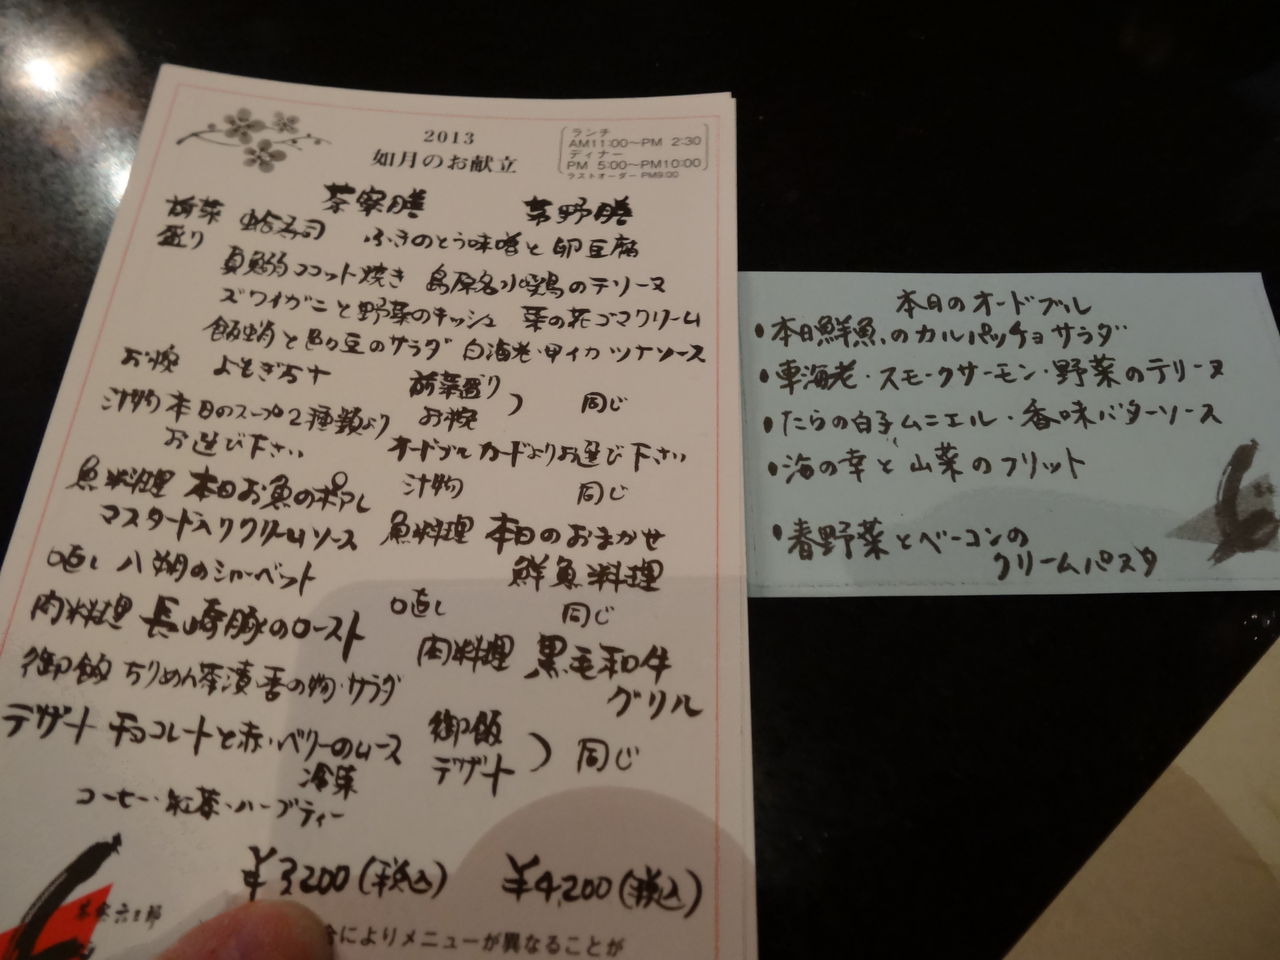 2013
如月のお献立
ランチ
AM11:00〜PM 2:30
ディナー
PM 5:00〜PM10:00
ラストオーダー PM9:00
茶寮膳
前菜盛り
蛤寿司
ふきのとう味噌と卵豆腐
真鯛ココット焼き 島原名水鶏のテリーヌ
ズワイガニと野菜のキッシュ 菜の花ゴマクリーム
飯蛸と豆のサラダ 白海老・甲イカ ツナソース
お椀 よもぎ万十
汁物 本日のスープ2種類より
お選び下さい
魚料理 本日お魚のポアレ
マスタード入りクリームソース
口直し 八朔のシャーベット
肉料理 長崎豚のロースト
御飯 ちりめん茶漬 香の物・サラダ
デザート チョコレートと赤いベリーのムース
冷菓
コーヒー・紅茶・ハーブティー
¥3,200(税込)
野膳
前菜盛り
お椀
) 同じ
オードブルカードよりお選び下さい
汁物 同じ
魚料理 本日のおまかせ
鮮魚料理
口直し 同じ
肉料理 黒毛和牛
グリル
御飯
デザート
) 同じ
¥4,200(税込)
合によりメニューが異なることが
本日のオードブル
・本日鮮魚のカルパッチョサラダ
・車海老・スモークサーモン・野菜のテリーヌ
・たらの白子ムニエル・香味バターソース
・海の幸と山菜のフリット
・春野菜とベーコンの
クリームパスタ